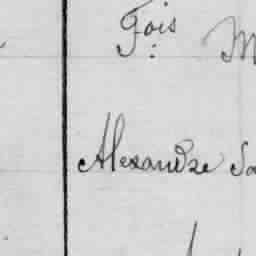 Fois M
Alexandre Sa